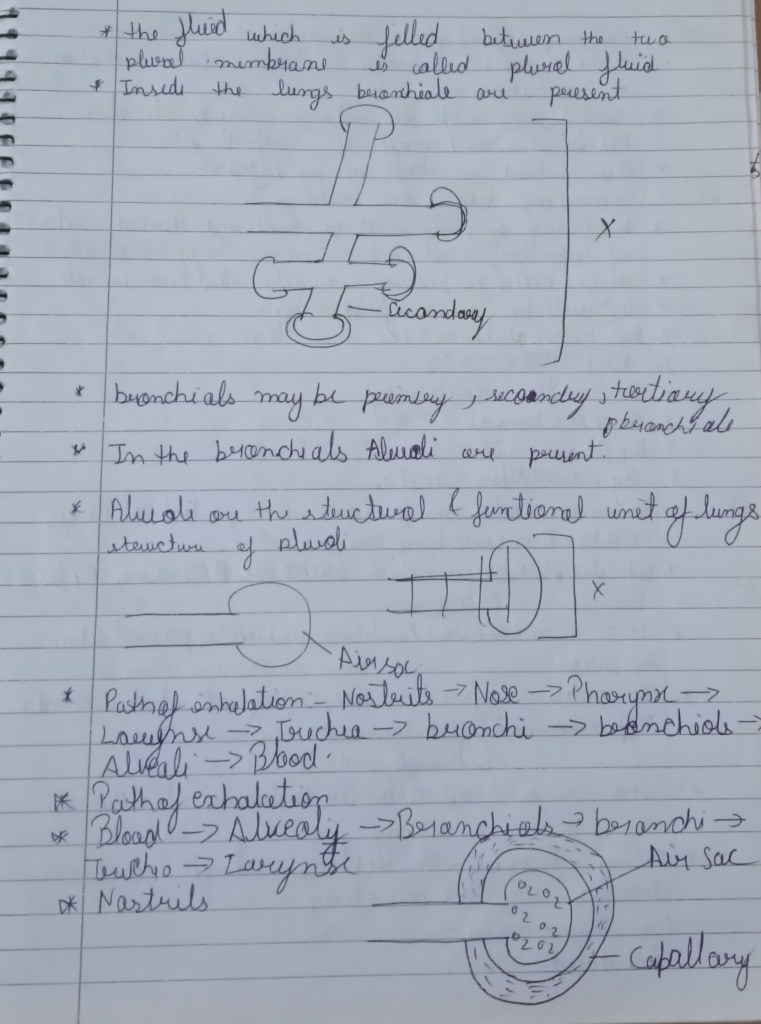 * the fluid which is filled between the two
plural membrane is called plural fluid
* Inside the lungs bronchiale are present
X
Secondary
* bronchials may be primary, secoondry, tertiary
bronchiale
* In the bronchials Alveoli are present.
* Alveoli are th structural & funtional unit of lungs
structure of alveoli
X
Air sac
* Path of enhalation - Nostrils → Nose → Pharynx →
Larynx → Trachea → bronchi → bronchiols →
Alveali → Blood.
* Path of exhalation
* Blood → Alvealy → Branchials → branchi →
Trachio → Larynx
* Nastrils
Air sac
O2 O2
O2
O2
O2 O2
Capallary